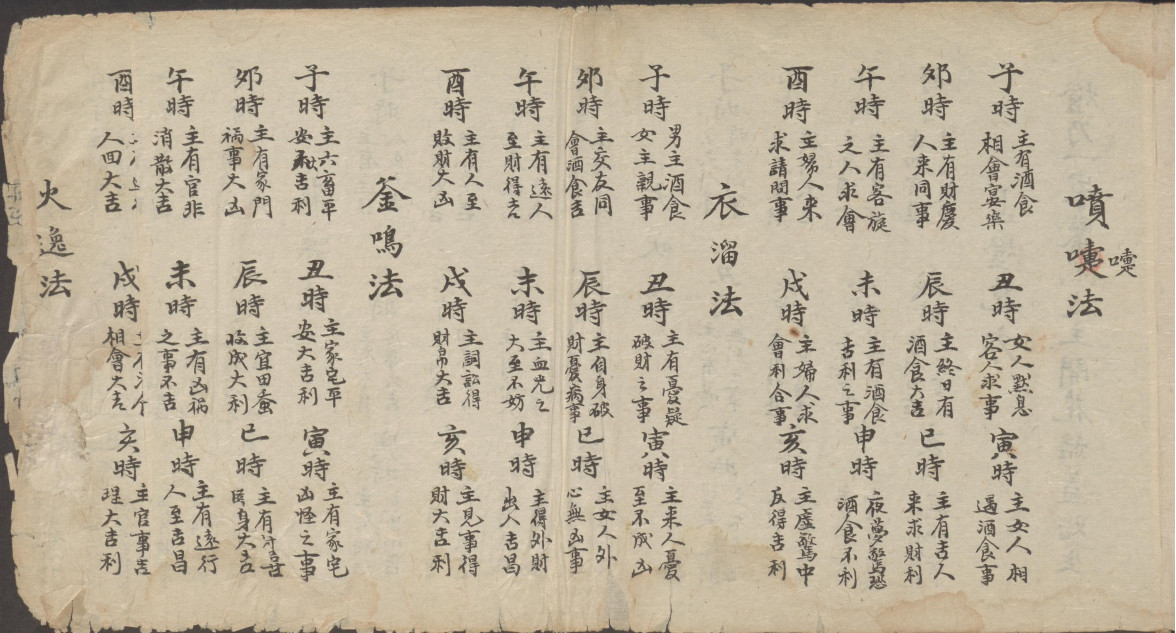 噴嚏法
嚏
子時 主有酒食相會宴樂 丑時 女人默息客人求事 寅時 主女人相遇酒食事
卯時 主有財慶人來同事 辰時 主終日有酒食大吉 巳時 主有吉人來求財利
午時 主有客旋之人求會 未時 主有酒食吉利之事 申時 夜夢驚恐酒食不利
酉時 主婦人來求請問事 戌時 主婦人求會利合事 亥時 主虛驚中反得吉利
衣溜法
子時 男主酒食女主親事 丑時 主有憂疑破財之事 寅時 主來人憂至不成凶
卯時 主交友同會酒食吉 辰時 主自身破財憂病事 巳時 主女人外心無凶事
午時 主有遠人至財得吉 未時 主血光之大至不妨 申時 主得外財出人吉昌
酉時 主有人至敗財大凶 戌時 主詞訟得財帛大吉 亥時 主見事得財大吉利
釜鳴法
子時 主六畜平安吉利 丑時 主家宅平安大吉利 寅時 主有家宅凶怪之事
卯時 主有家門禍事大凶 辰時 主宜田蚕收成大利 巳時 主有身大吉
午時 主有官非消散大吉 未時 主有凶禍之事不吉 申時 主有遠行人至吉昌
酉時 人回大吉 戌時 相會大吉 亥時 主官事吉理大吉利
火逸法